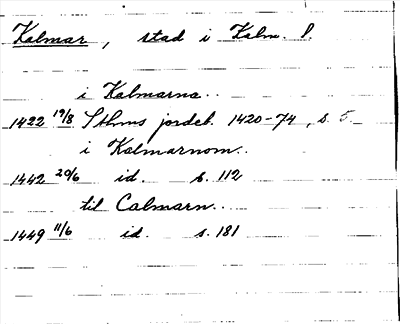 Kalmar, stad i Kalm. l.
i Kalmarna..
1422 19/8 Sthms jordeb. 1420-74, s. 5.
i Kalmarnom..
1442 20/6 id. s. 112
til Calmarn..
1449 11/6 id. s. 181